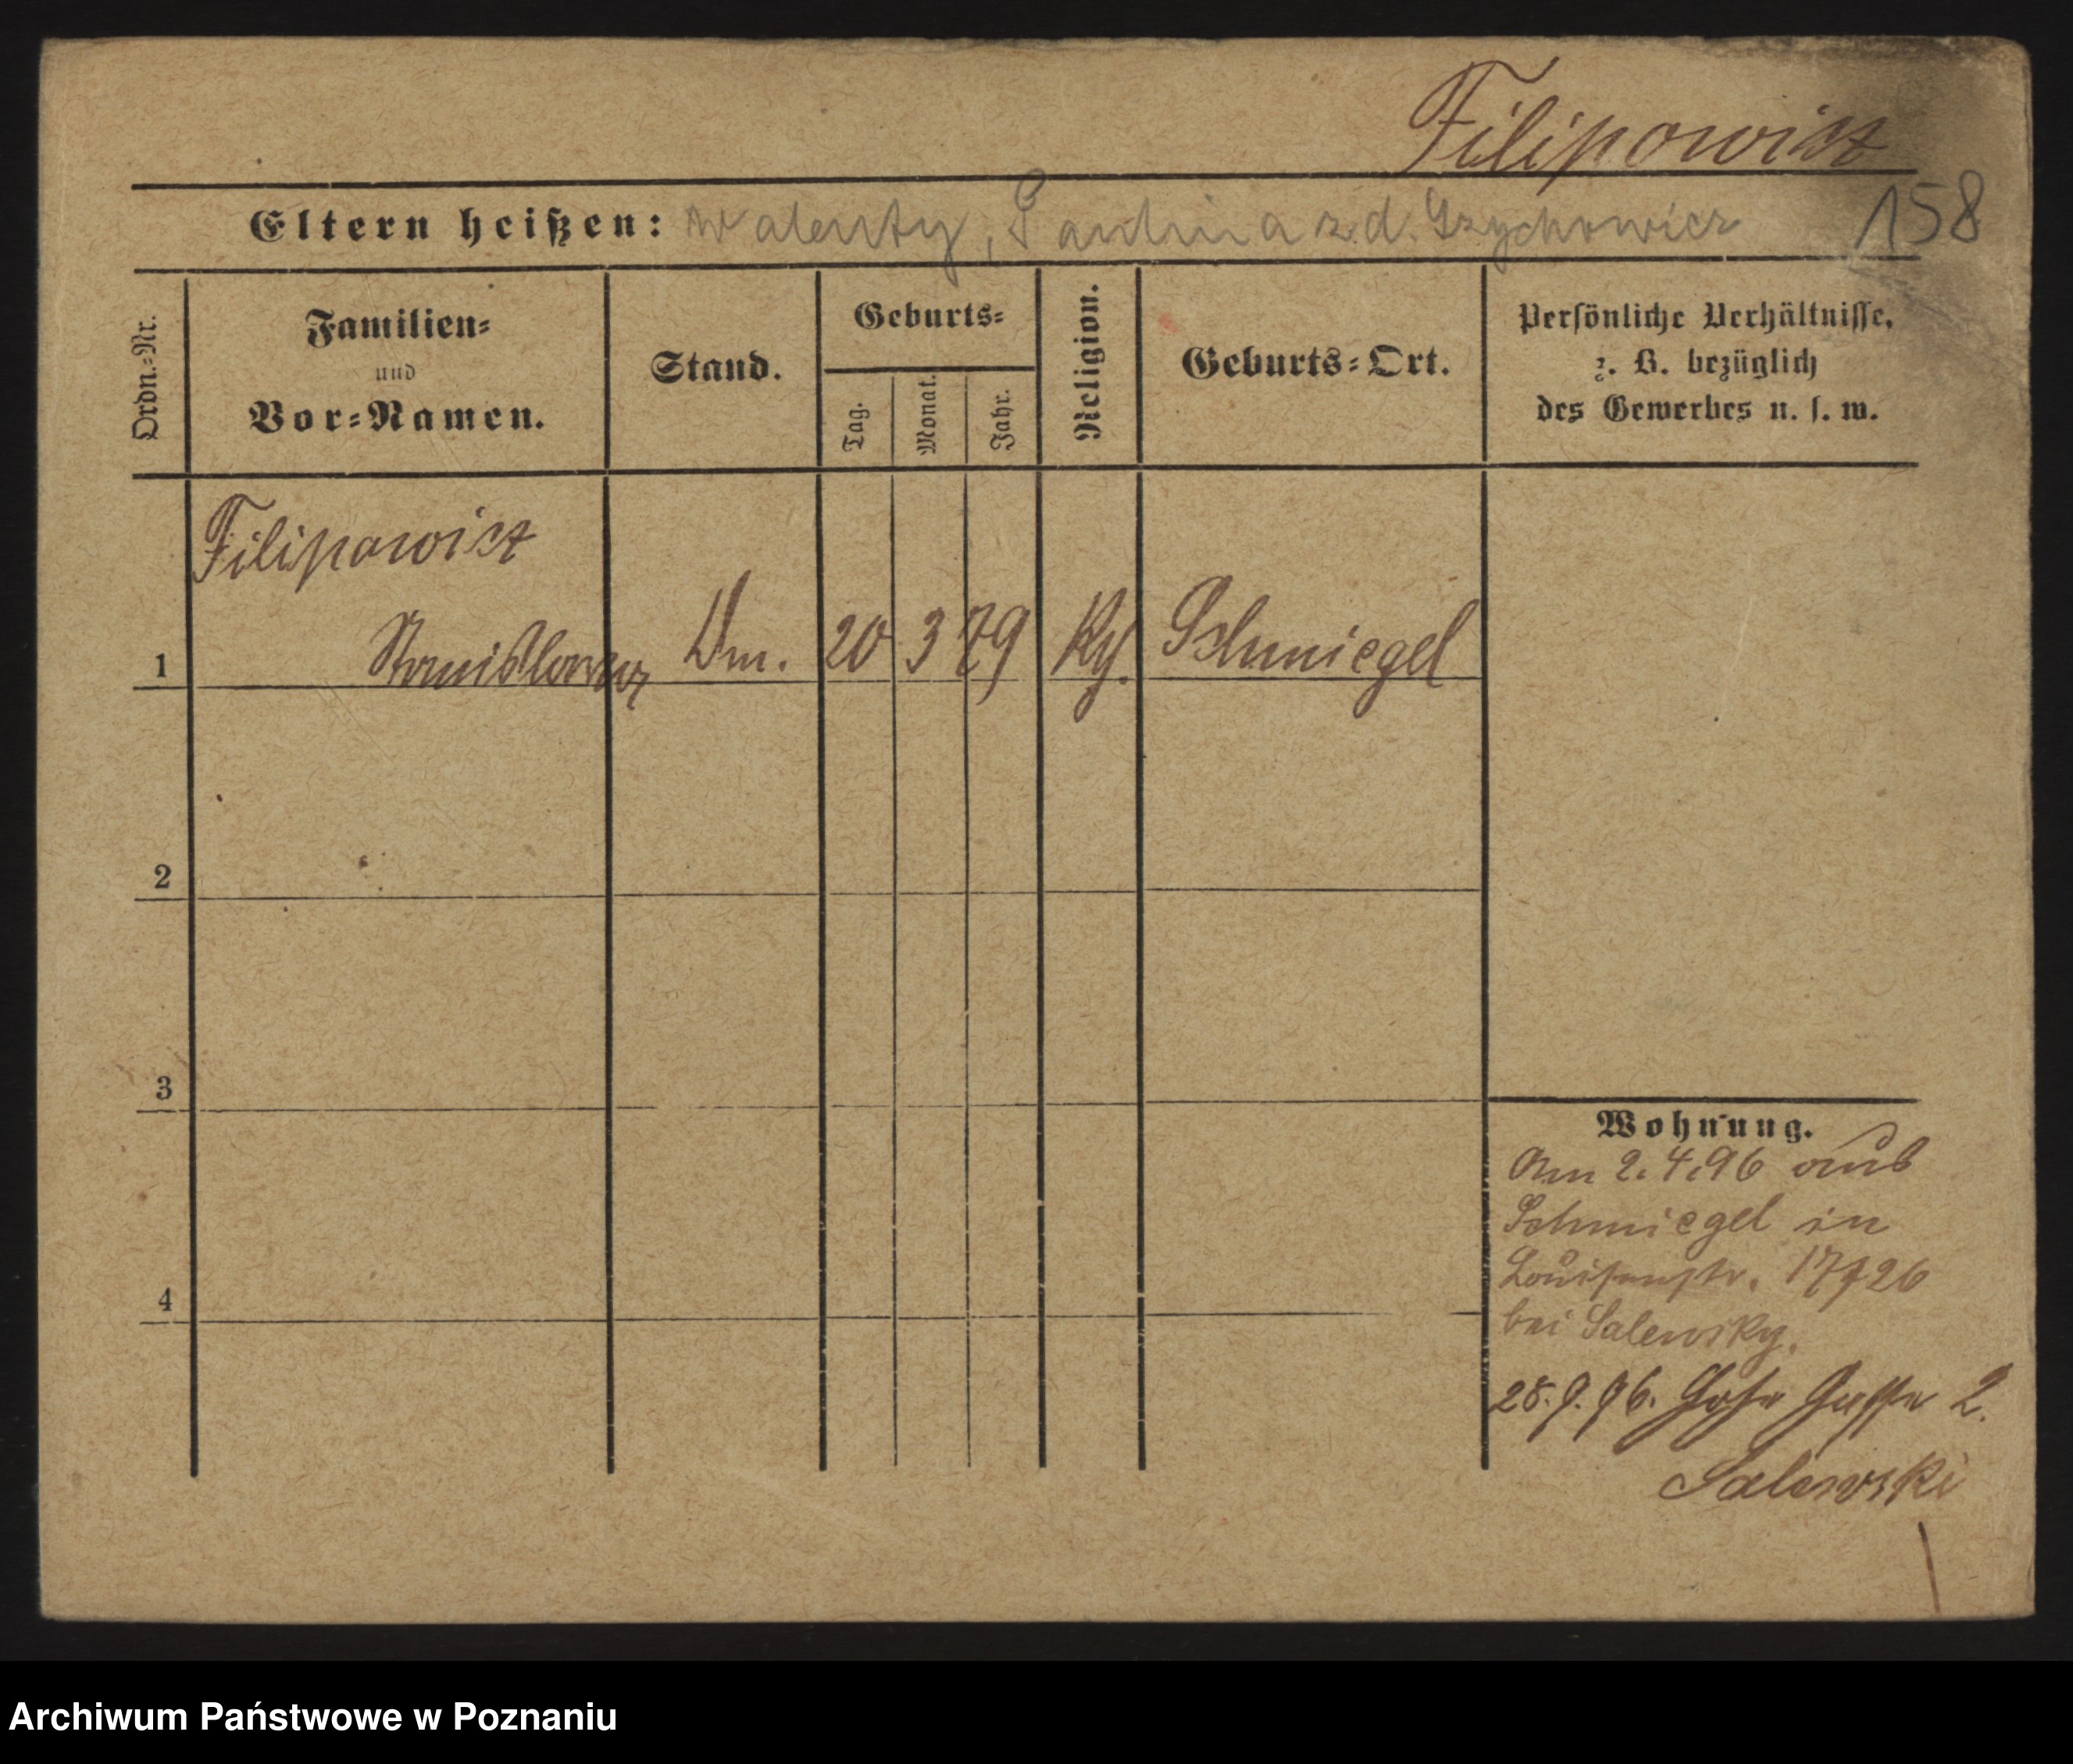 Filipowicz
158
Eltern heißen: Walenty, Paulina z d. Grzychowicz
Ordn.-Nr.
Familien-
und
Vor-Namen.
Stand.
Geburts-
Tag.
Monat.
Jahr.
Religion.
Geburts-Ort.
Persönliche Verhältnisse,
z. B. bezüglich
des Gewerbes u. s. w.
Filipowicz
1 Stanislaus 20 3 79 Schmiegel
2
3
4
Wohnung.
Am 2.4.96 aus
Schmiegel in
Louisenstr.
bei Salewsky.
28.9.96. Hohe Gasse 2.
Salewski
Archiwum Państwowe w Poznaniu